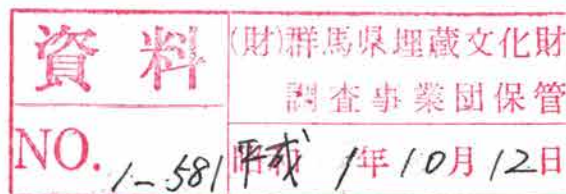 資料
(財)群馬県埋蔵文化財
調査事業団保管
NO. 1-581
昭和 平成 1年10月12日